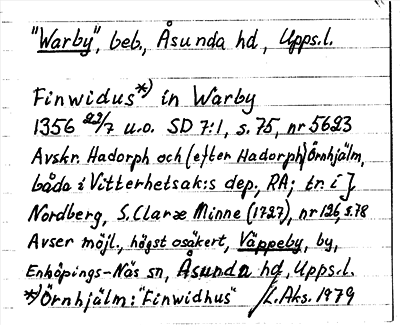 "Warby", beb., Åsunda hd, Upps.l.
Finwidus*) in Warby
1356 22/7 u.o. SD 7:1, s. 75, nr 5623
Avskr. Hadorph och (efter Hadorph) Örnhjälm,
båda i Vitterhetsak:s dep., RA; tr. i J.
Nordberg, S. Claræ Minne (1727), nr 126, s. 78
Avser möjl., högst osäkert, Väppeby, by,
Enhöpings-Näs sn, Åsunda hd, Upps.l.
*) Örnhjälm: "Finwidhus" L. Aks. 1979